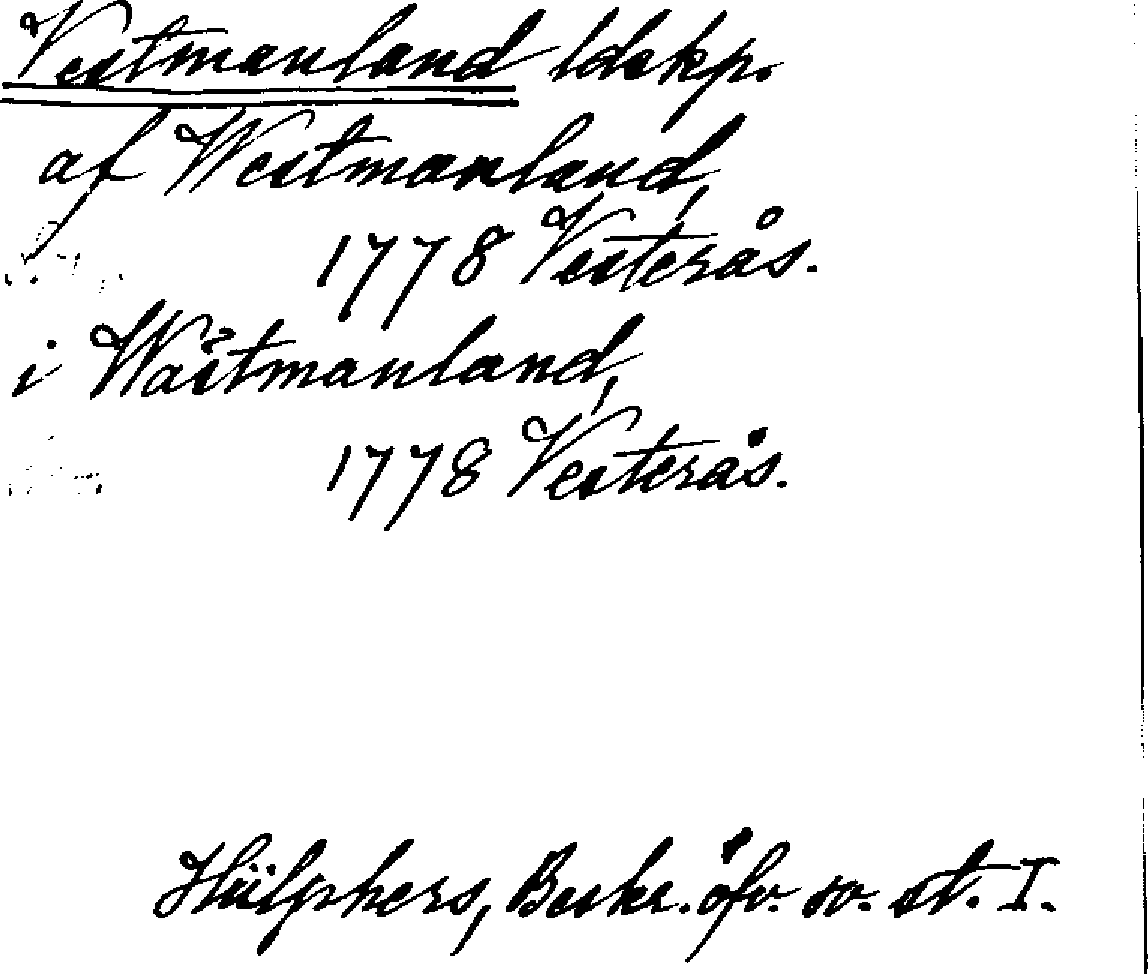 Vestmanland ldskp.
af Westmanland,
1778 Vesterås.
i Wästmanland,
1778 Vesterås.
Hülphers, Beskr. öfv. sv. st. I.